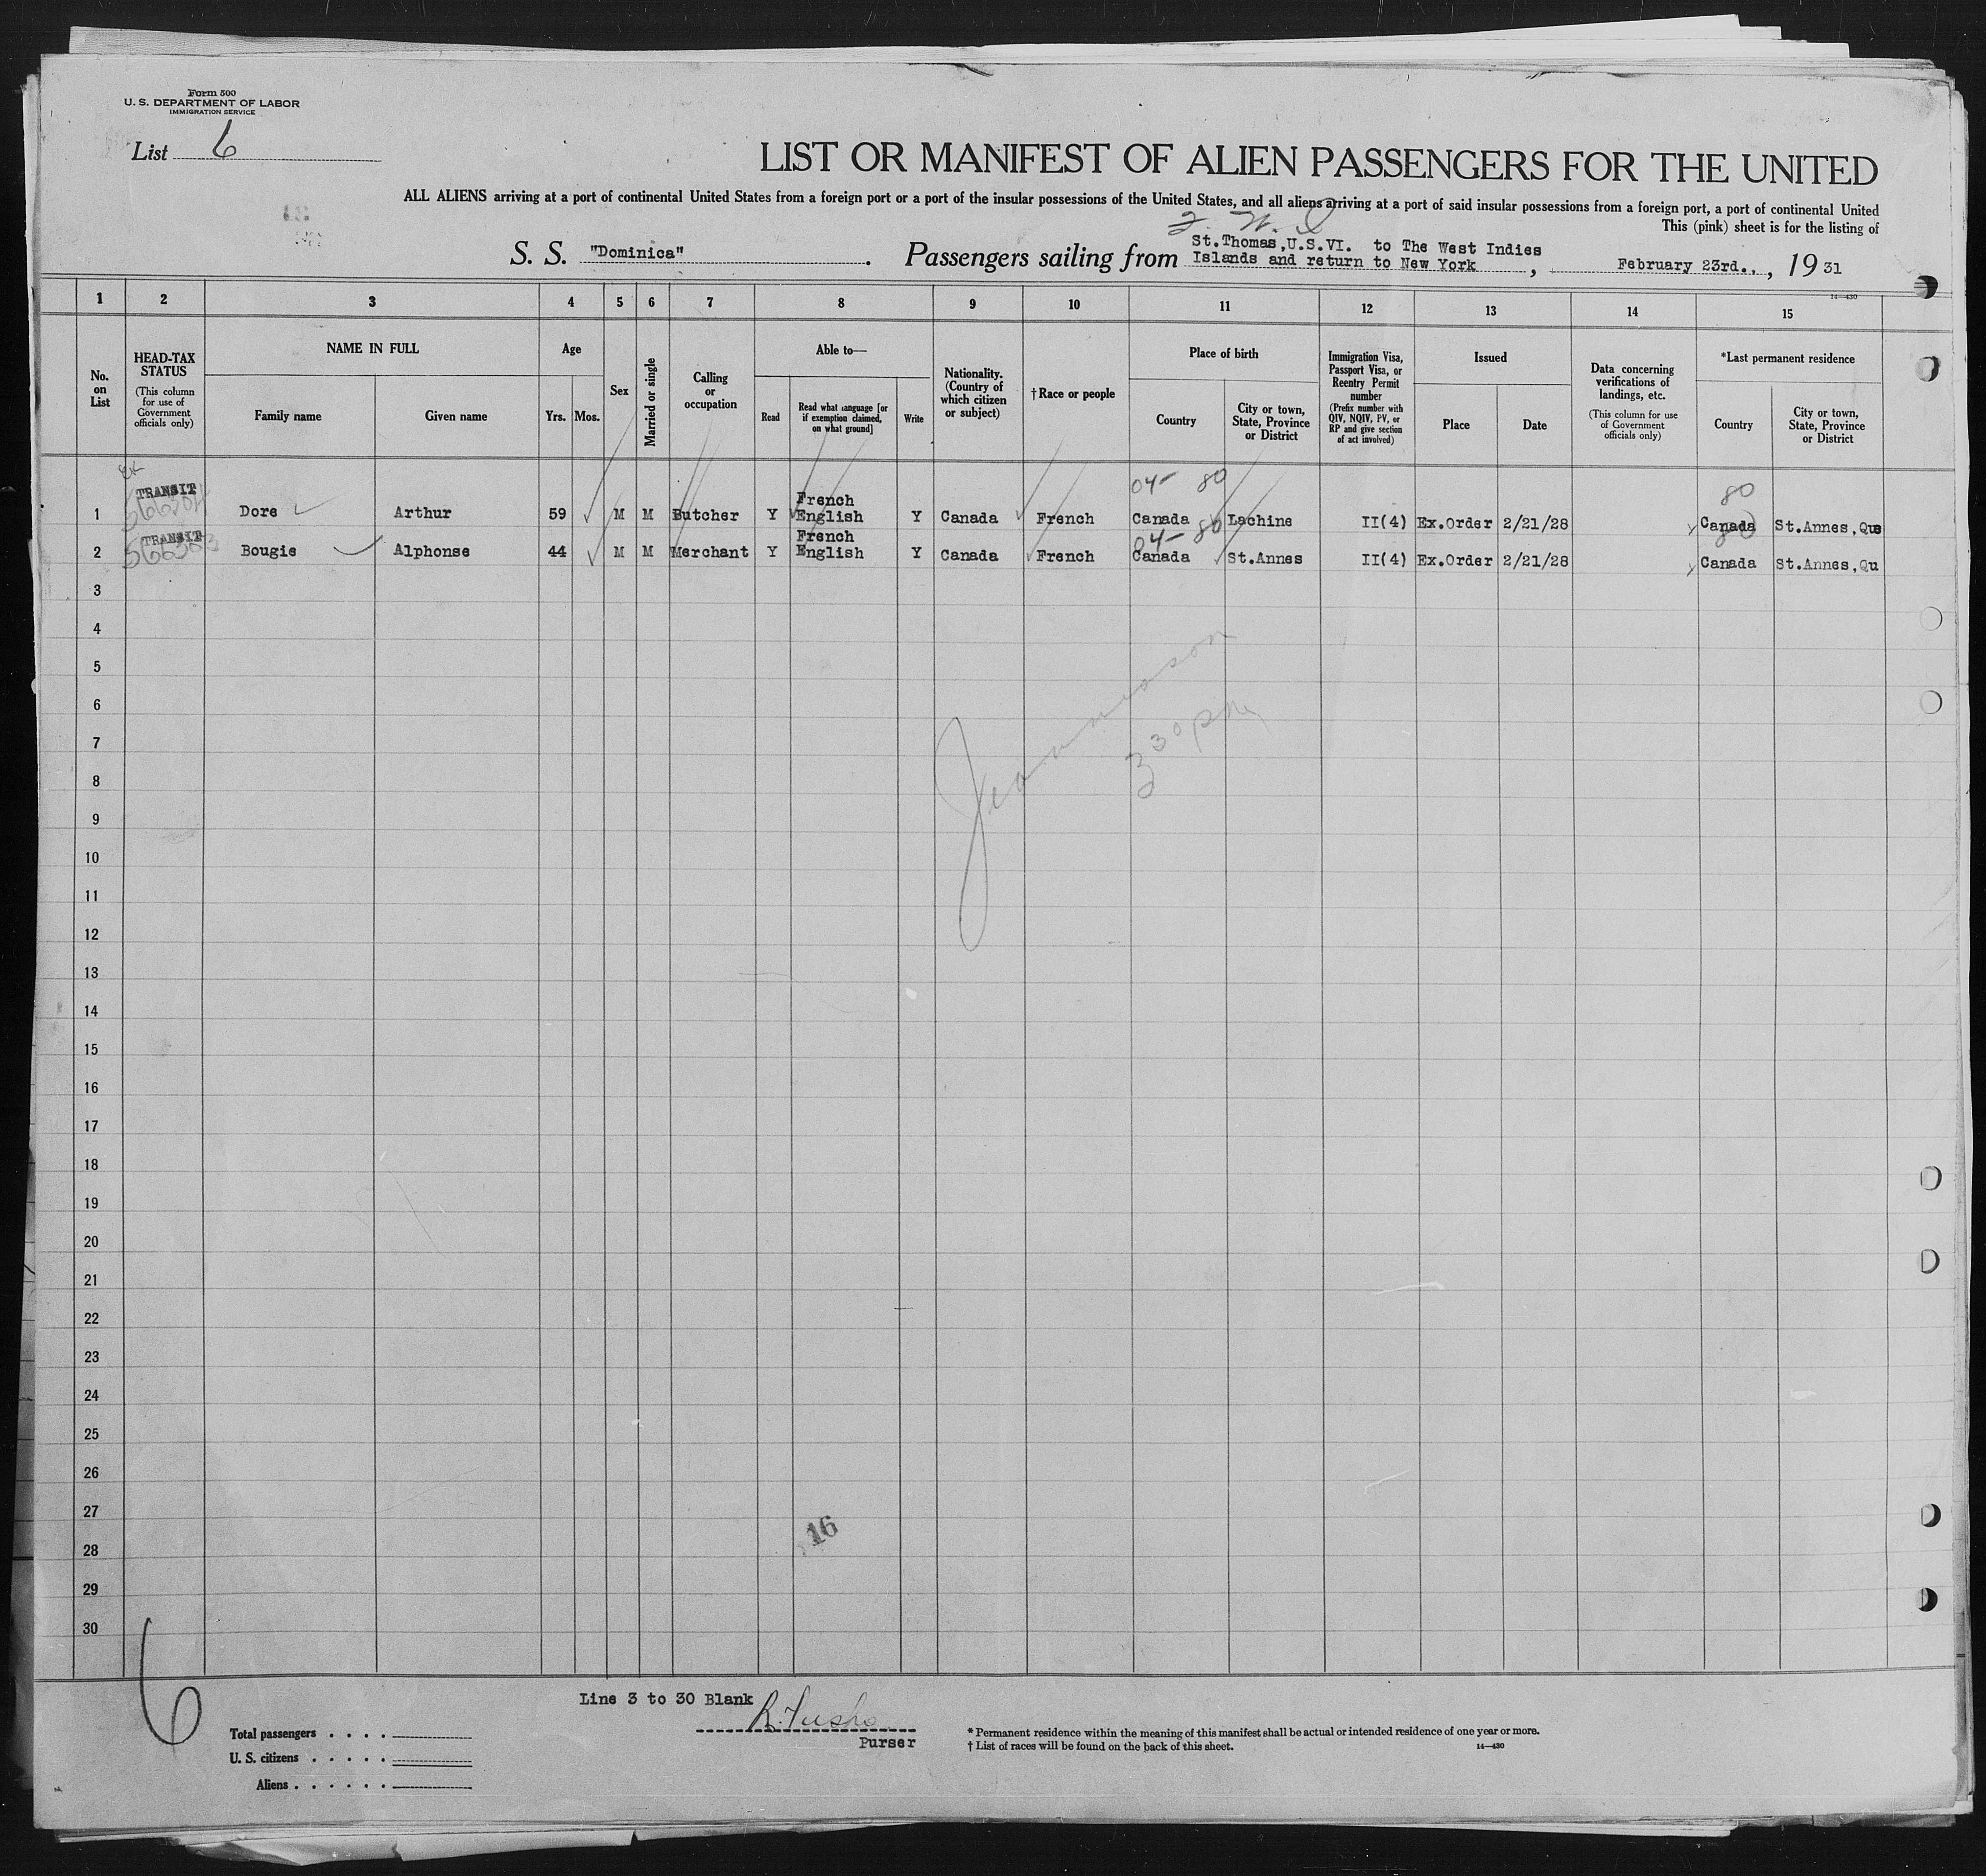 Form 500
U. S. DEPARTMENT OF LABOR
IMMIGRATION SERVICE
List 6
LIST OR MANIFEST OF ALIEN PASSENGERS FOR THE UNITED
ALL ALIENS arriving at a port of continental United States from a foreign port or a port of the insular possessions of the United States, and all aliens arriving at a port of said insular possessions from a foreign port, a port of continental United
This (pink) sheet is for the listing of
S. S. "Dominica". Passengers sailing from St.Thomas,U.S.VI. to The West Indies
Islands and return to New York, February 23rd.., 1931
14—430
1 2 3 4 5 6 7 8 9 10 11 12 13 14 15
No. on List
HEAD-TAX STATUS
(This column for use of Government officials only)
NAME IN FULL
Family name
Given name
Age
Yrs. Mos.
Sex
Married or single
Calling or occupation
Able to—
Read
Read what language [or if exemption claimed, on what ground]
Write
Nationality. (Country of which citizen or subject)
†Race or people
Place of birth
Country
City or town, State, Province or District
Immigration Visa, Passport Visa, or Reentry Permit number
(Prefix number with QIV, NQIV, PV, or RP and give section of act involved)
Issued
Place
Date
Data concerning verifications of landings, etc.
(This column for use of Government officials only)
*Last permanent residence
Country
City or town, State, Province or District
04- 80
80
TRANSIT
French
1 Dore Arthur 59 M M Butcher Y English Y Canada French Canada Lachine II(4) Ex.Order 2/21/28 Canada St.Annes,Que
TRANSIT
French
04- 80
80
2 Bougie Alphonse 44 M M Merchant Y English Y Canada French Canada St.Annes II(4) Ex.Order 2/21/28 Canada St.Annes,Qu
3
4
5
6
7
3 30 pm
8
9
10
11
12
13
14
15
16
17
18
19
20
21
22
23
24
25
26
27
16
28
29
30
6
Line 3 to 30 Blank
Purser
Total passengers . . . .
U. S. citizens . . . . .
Aliens . . . . . .
* Permanent residence within the meaning of this manifest shall be actual or intended residence of one year or more.
† List of races will be found on the back of this sheet.
14—430